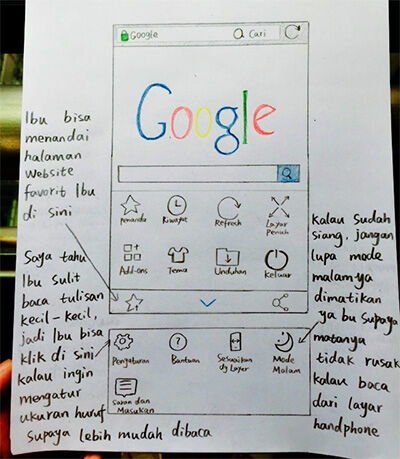 Google
Cari
Google
Ibu bisa
menandai
halaman
website
favorit Ibu
di sini
penanda
Riwayat
Refresh
Layar
Penuh
Add-ons
Tema
Unduhan
Keluar
Saya tahu
Ibu sulit
baca tulisan
kecil-kecil,
jadi Ibu bisa
klik di sini
kalau ingin
mengatur
ukuran huruf
supaya lebih mudah dibaca
Pengaturan
Bantuan
Sesuaikan
dg Layar
Mode
Malam
Saran dan
Masukan
kalau sudah
siang, jangan
lupa mode
malamya
dimatikan
ya bu supaya
matanya
tidak rusak
kalau baca
dari layar
handphone